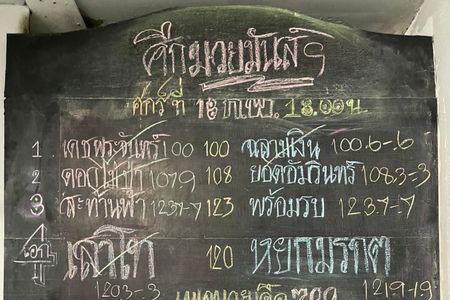 ศึกมวยมันส์ๆ
ศุกร์ ที่ 18 ก.พ. 18.00น
1 เดชพระจันทร์ 100 100 ฉลามเงิน 100.6-.6
2 ดอกไม้ป่า 107.9 108 ยอดอัมรินทร์ 108.3-3
3 สะท้านฟ้า 123.7-7 123 พร้อมรบ 123.7-7
4 เอก เลาโท 120 หยกมรกต
120.3-3 121.9-19